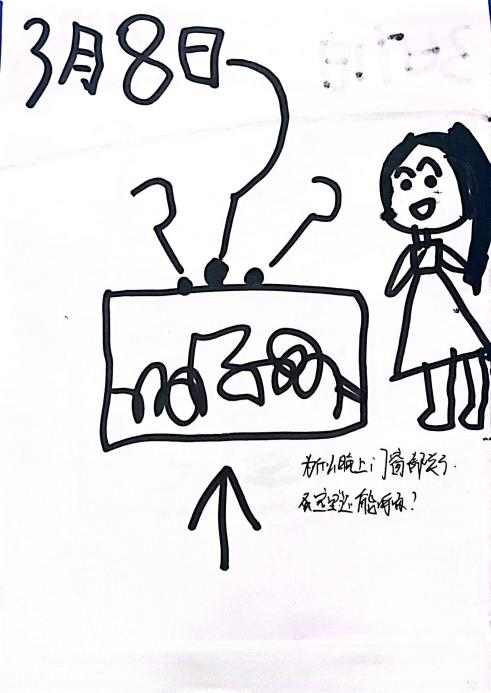 3月8日
为什么晚上门窗都关了.
在这里还能呼吸?